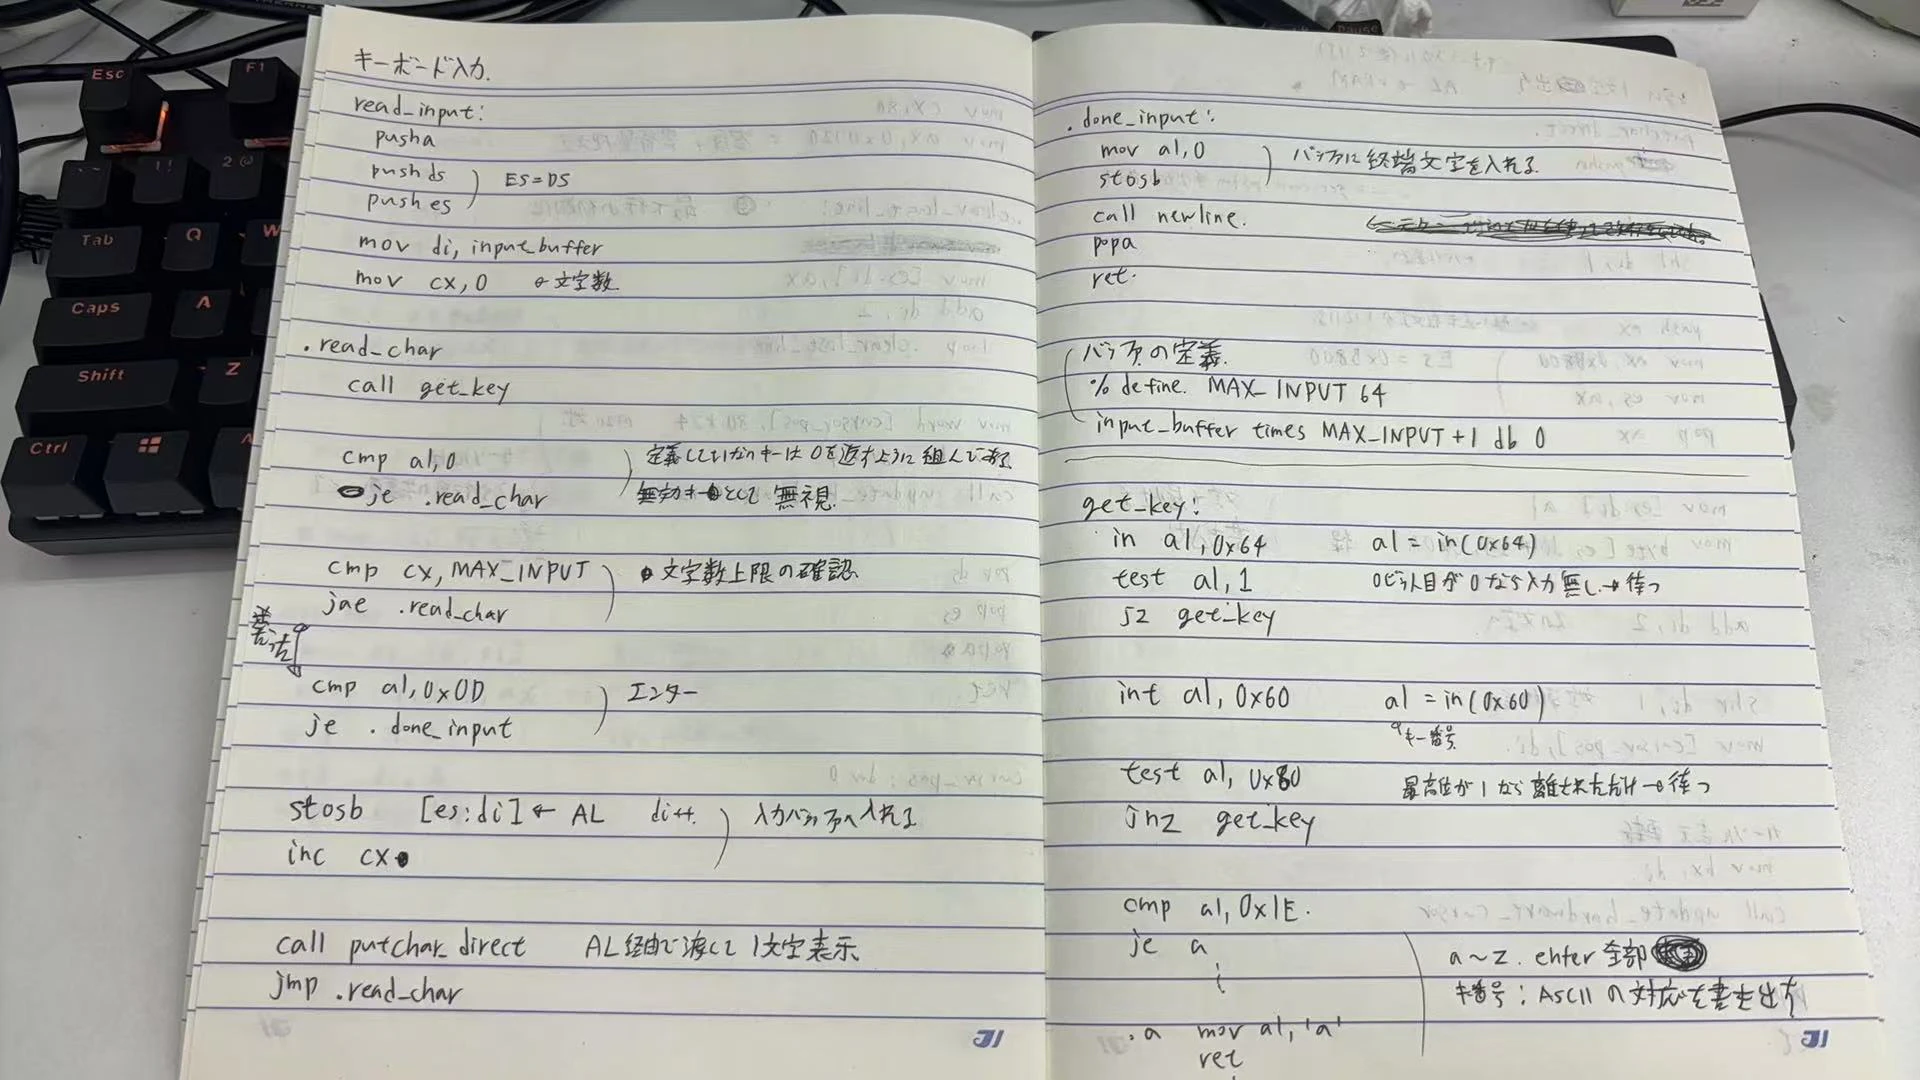 キーボード入力.
read_input:
pusha
push ds
push es
ES=DS
mov di, input_buffer
mov cx, 0 文字数
.read_char
call get_key
cmp al, 0 定義していないキーは0を返すように組んである
je .read_char 無効キーとして無視.
cmp cx, MAX_INPUT 文字数上限の確認
jae .read_char
cmp al, 0x0D エンター
je .done_input
stosb [es:di] ← AL di++. 入力バッファへ入れる
inc cx
call putchar_direct AL経由で渡して1文字表示
jmp .read_char
.done_input:
mov al, 0 バッファに終端文字を入れる
stosb
call newline.
popa
ret.
バッファの定義.
% define. MAX_INPUT 64
input_buffer times MAX_INPUT+1 db 0
get_key:
in al, 0x64 al = in(0x64)
test al, 1 0ビット目が0なら入力無し→待つ
jz get_key
int al, 0x60 al = in(0x60)
キー番号
test al, 0x80 最高位が1なら離されただけ→待つ
jnz get_key
cmp al, 0x1E.
je a a~z. enter 全部
キー番号: ASCII の対応を書き出す
.a mov al, 'a'
ret
Esc
F1
Tab Q W
Caps A
Shift Z
Ctrl
Pause